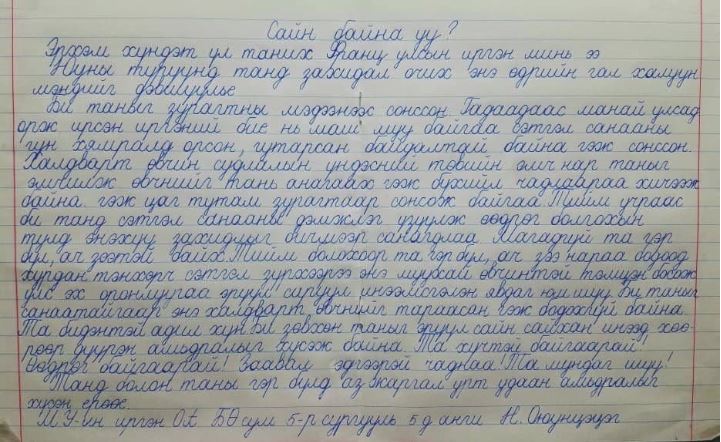 Сайн байна уу?
Эрхэм хүндэт үл таних Франц улсын иргэн минь ээ
Нуны түрүүнд танд захидал очих энэ өдрийн гал халуун
мэндийг дэвшүүлье
Би таныг зурагтны мэдээнээс сонссон. Гадаадаас манай улсад
орж ирсэн иргэний бие нь маш муу байгаа сэтгэл санааны
гүн хямралд орсон, гутарсан байдалтай байна гэж сонссон.
Халдварт өвчин судлалын үндэсний төвийн эмч нар таныг
эмчилж өвчнийг тань анагаах гэж бүхийл чадлаараа хичээж
байна. гэж цаг тутам зурагтаар сонсож байгаа. Тийм учраас
би танд сэтгэл санааны дэмжлэг үзүүлж өөдрөг болгохын
тулд энэхүү захидлыг бичихээр санаглаа. Магадгүй та гэр
бүл, ач зээтэй байх. Тийм болохоор та гэр бүл, ач зээ нараа бодоод
хурдан тэнхэрч сэтгэл зүрхээрээ энэ муухай өвчинтэй тэмцэн босож
улс эх оронлуугаа эрүүл саруул инээмсэглэн явдаг юм шүү. Би таныг
санаатайгаар энэ халдварт өвчнийг тараасан гэж бодохгүй байна.
Та бидэнтэй адил хүн би зөвхөн таныг эрүүл сайн сайхан инээд хөө-
рөөр дүүрэн амьдралыг хүсэж байна. Та хүчтэй байгаарай!
Өөдрөг байгаарай! Заавал эдгээрэй чаднаа! Та мундаг шүү!
Танд болон таны гэр бүлд аз жаргал урт удаан амьдралыг
хүсэн ерөөе.
МУ-ын иргэн ӨА БӨ сум 5-р сургууль 5д анги Н. Оюунцэцэг